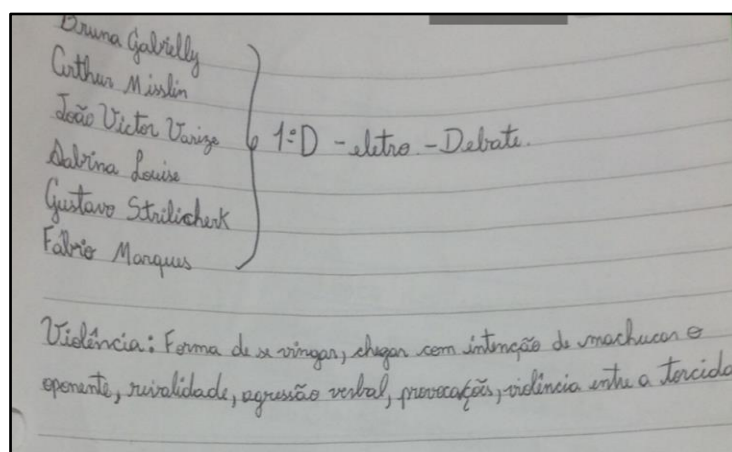 Bruna Gabrielly
Arthur Misslin
João Victor Varize
Sabrina Louise
Gustavo Strilicherk
Fábio Marques
1º D - eletro - Debate.
Violência: Forma de se vingar, chegar com intenção de machucar o
oponente, rivalidade, agressão verbal, provocações, violência entre a torcida